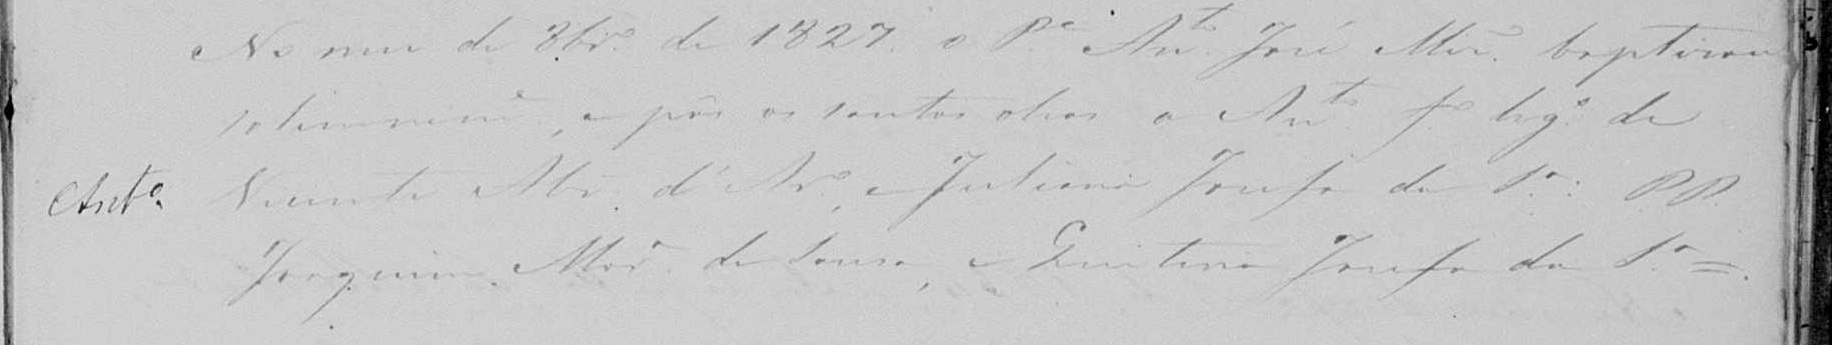 No mez de 8br.º de 1827. o P.e Ant.º José Mor.ª baptisou
solemnem.e, e pôs os santos oleos a Ant.º f.º leg.º de
Ant.º Vicente Alz. d'Ar.º, e Juliana Josefa da S.ª: P.P.
Joaquim Mor.ª de Sousa, e Quiteria Josefa da S.ª =.